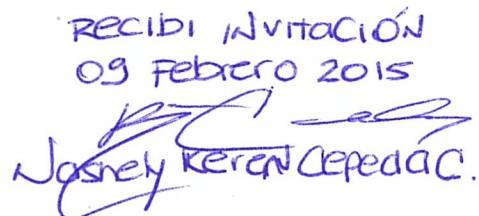 RECIBI INVITACIÓN
09 Febrero 2015
Keren Cepeda C.